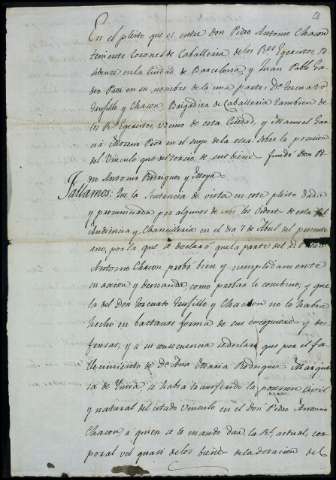 En el pleito que es entre don Pedro Antonio Chacon
theniente Coronel de Caballeria de los R.s Egercitos, re
sidente en la Ciudad de Barcelona, y Juan Pablo
Pror en su nombre de la una parte: Dn Torcuato
Trujillo y Chacon Brigadier de Caballeria tambien de
los R.s Egercitos, vecino de esta Ciudad, y Manuel
Pror en el suyo de la otra: Sobre la posesion
del Vinculo que de sus bienes fundo Don Pe
dro Antonio Rodriguez y
Fallamos: Que la Sentencia de vista en este pleito dada
y pronunciada por algunos de nos los Oidores de esta
Audiencia y Chancilleria en el dia 7 de Abril del presente
año, por la que se declaró que la parte del Dn Pedro
Antonio Chacon probó bien y cumplidamente
su accion y demanda, como probar le combino, y que
la del Don Torcuato Trujillo y Chacon no lo habia
hecho en bastante forma de sus excepciones y de
fensas, y a su consecuencia declara que por el fa
llecimiento de Da Ana Rodriguez Marque
sa de se habia transferido la posesion civil
y natural del citado vinculo en el don Pedro Antonio
Chacon a quien se le mando dar la Rl actual, cor
poral vel quasi de los bienes de la dotacion del